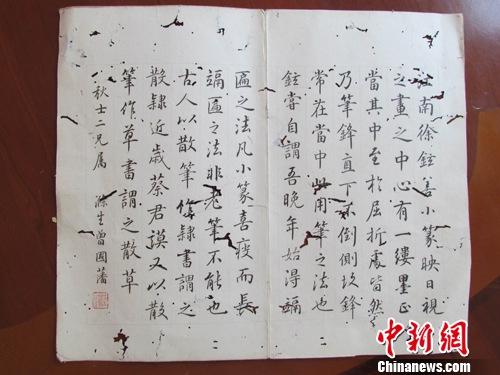 江南徐鉉善小篆映日視
之畫之中心有一縷墨正
當其中至於屈折處皆然
乃筆鋒直下不倒側故鋒
常在當中此用筆之法也
鉉嘗自謂吾晚年始得竵
匾之法凡小篆喜瘦而長
竵匾之法非老筆不能也
古人以散筆作隸書謂之
散隸近歲蔡君謨又以散
筆作草書謂之散草
秋士二兄屬 滌生曾國藩
中新網
www.chinanews.com